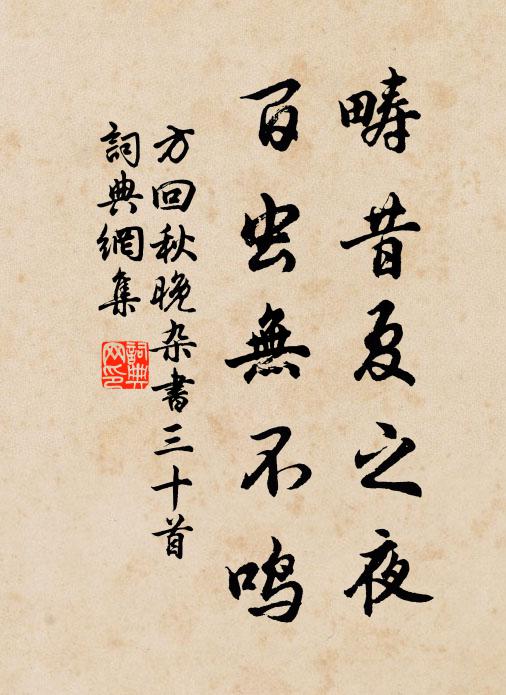 畴昔夏之夜
百虫無不鸣
方回秋晚杂書三十首
詞典網集
詞典网印